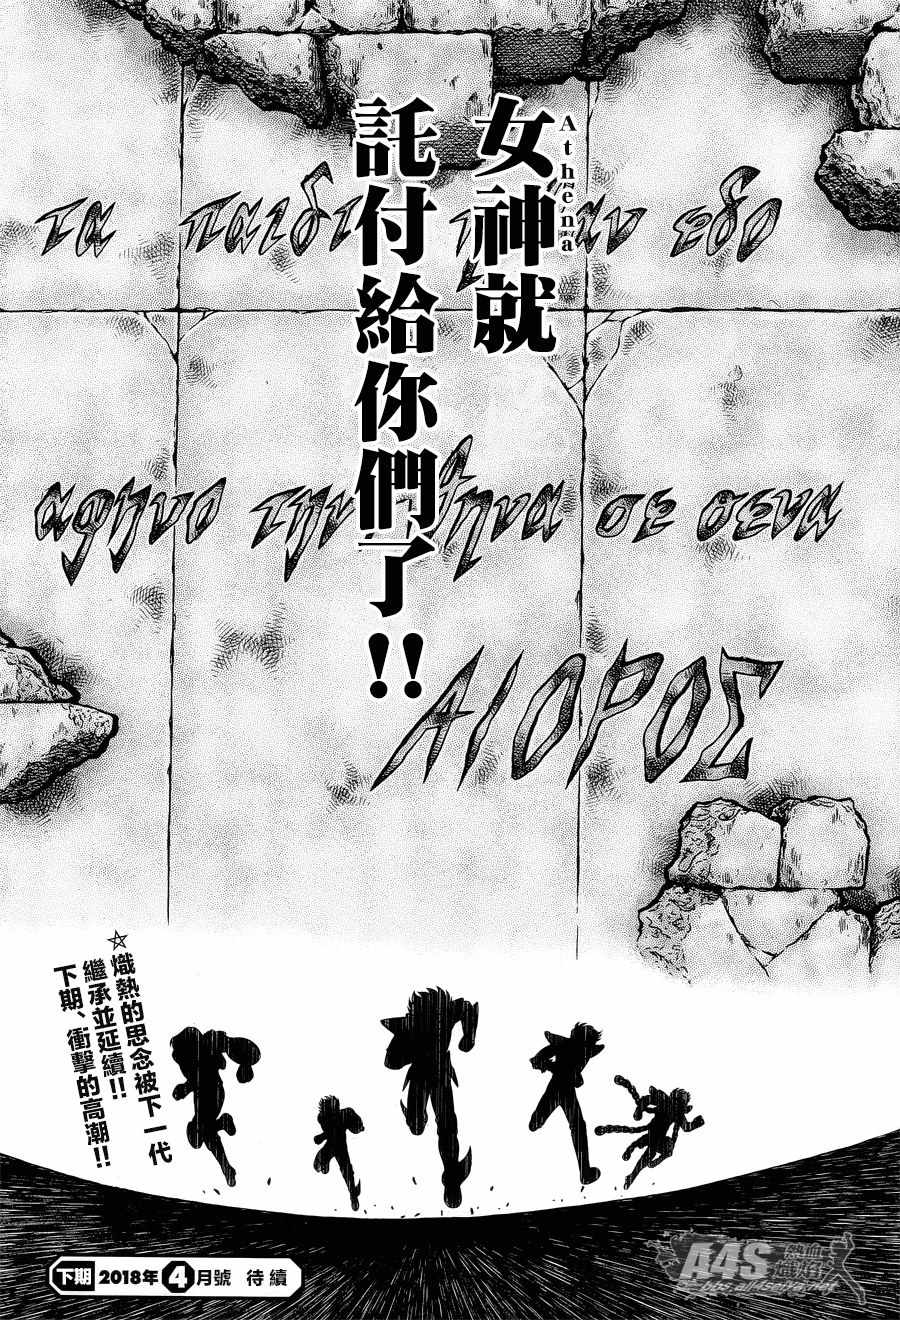 女神就
Athena
託付給你們了!!
τα παιδι ήταν εδο
αφηνο την αθηνα σε σενα
ΑΙΟΡΟΣ
☆熾熱的思念被下一代
繼承並延續!!
下期、衝擊的高潮!!
下期 2018年4月號 待續
A4S 熱血熾焰